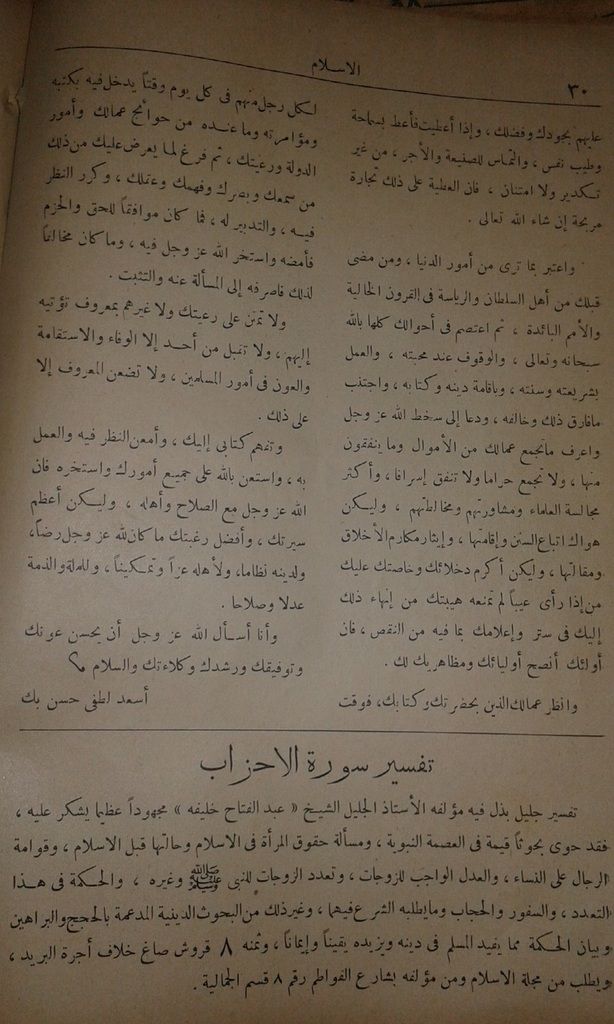 ٣٠
الاسلام
عليهم بجودك وفضلك ، وإذا أعطيت فأعط بسماحة
وطيب نفس ، والتماس للصنيعة والأجر ، من غير
تكدير ولا امتنان ، فان العطية على ذلك تجارة
مربحة إن شاء الله تعالى .
واعتبر بما ترى من أمور الدنيا ، ومن مضى
قبلك من أهل السلطان والرياسة فى القرون الخالية
والأمم البائدة ، ثم اعتصم فى أحوالك كلها بالله
سبحانه وتعالى ، والوقوف عند محبته ، والعمل
بشريعته وسنته ، وباقامة دينه وكتابه ، واجتنب
مافارق ذلك وخالفه ، ودعا إلى سخط الله عز وجل
واعرف ماتجمع عمالك من الأموال وما ينفقون
منها ، ولا تجمع حراما ولا تنفق إسرافا ، وأكثر
مجالسة العلماء ومشاورتهم ومخالطتهم ، وليكن
هواك اتباع السنن وإقامتها ، وإيثار مكارم الأخلاق
ومقالتها ، وليكن أكرم دخلائك وخاصتك عليك
من إذا رأى عيباً لم تمنعه هيبتك من إنهاء ذلك
إليك فى ستر وإعلامك بما فيه من النقص ، فان
أولئك أنصح أوليائك ومظاهريك لك .
وانظر عمالك الذين بحضرتك وكتابك ، فوقت
لكل رجل منهم فى كل يوم وقتاً يدخل فيه بكتبه
ومؤامرته وما عنده من حوائج عمالك وأمور
الدولة ورعيتك ، ثم فرغ لما يعرض عليك من ذلك
من سمعك وبصرك وفهمك وعقلك ، وكرر النظر
فيه ، والتدبير له ، فما كان موافقاً للحق والحزم
فأمضه واستخر الله عز وجل فيه ، وما كان مخالفاً
لذلك فاصرفه إلى المسألة عنه والتثبت .
ولا تمنن على رعيتك ولا غيرهم بمعروف تؤتيه
إليهم ، ولا تقبل من أحد إلا الوفاء والاستقامة
والعون فى أمور المسلمين ، ولا تضعن المعروف إلا
على ذلك .
وتفهم كتابى إليك ، وأمعن النظر فيه والعمل
به ، واستعن بالله على جميع أمورك واستخره فان
الله عز وجل مع الصلاح وأهله ، وليكن أعظم
سيرتك ، وأفضل رغبتك ما كان لله عز وجل رضاً،
ولدينه نظاما، ولأهله عزاً وتمكيناً ، وللملة والذمة
عدلا وصلاحا .
وأنا أسأل الله عز وجل أن يحسن عونك
وتوفيقك ورشدك وكلاءتك والسلام
أسعد لطفى حسن بك
تفسير سورة الاحزاب
تفسير جليل بذل فيه مؤلفه الأستاذ الجليل الشيخ « عبد الفتاح خليفه » مجهوداً عظيما يشكر عليه ،
فقد حوى بحوثاً قيمة فى العصمة النبوية ، ومسألة حقوق المرأة فى الاسلام وحالتها قبل الاسلام ، وقوامة
الرجال على النساء ، والعدل الواجب للزوجات ، وتعدد الزوجات للنبى ﷺ وغيره ، والحكمة فى هذا
التعدد ، والسفور والحجاب وما يطلبه الشرع فيهما ، وغير ذلك من البحوث الدينية المدعمة بالحجج والبراهين
وبيان الحكمة مما يفيد المسلم فى دينه ويزيده يقيناً وإيماناً ، وثمنه ٨ قروش صاغ خلاف أجرة البريد ،
ويطلب من مجلة الاسلام ومن مؤلفه بشارع الفواطم رقم ٨ قسم الجمالية .